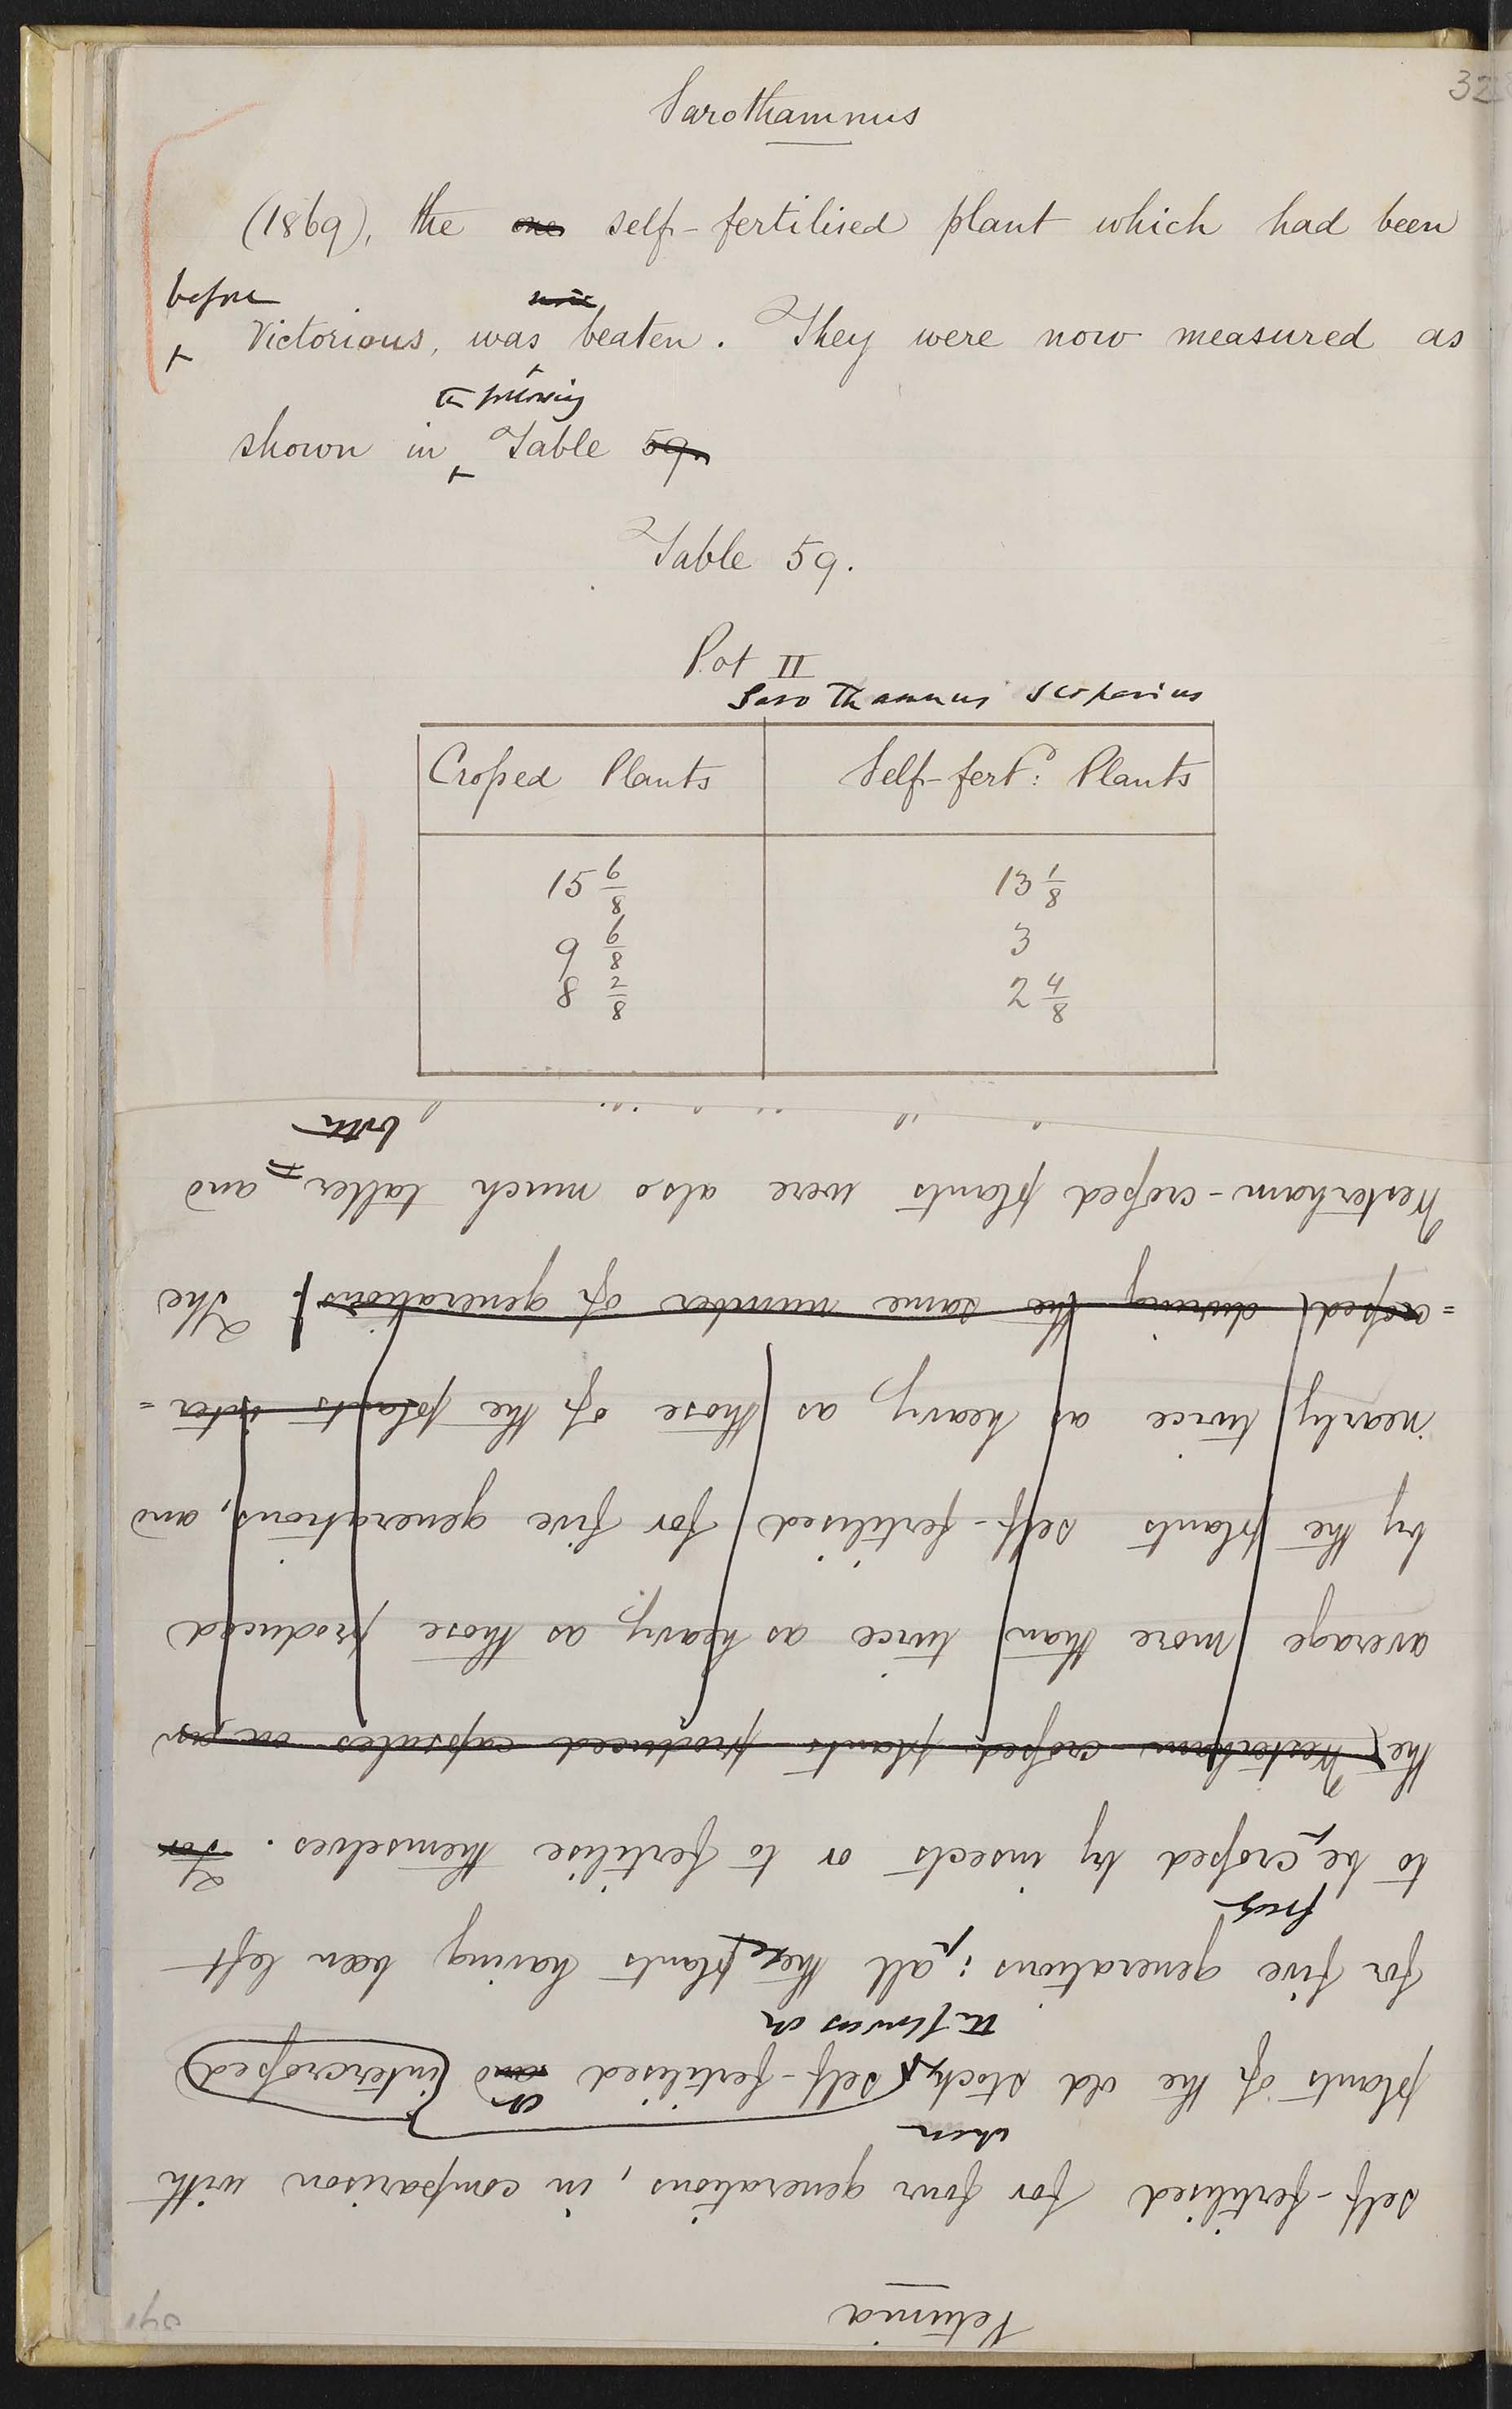 32
Sarothamnus
(1869), the one self-fertilised plant which had been
before
victorious, was beaten. They were now measured as
the following
shown in Table 59.
Table 59.
Pot II
Sarothamnus scoparius
Crossed Plants Self-fert.d Plants
15 6/8 13 1/8
9 6/8 3
8 2/8 2 4/8
Petunia
self-fertilised for four generations, in comparison with
when
plants of the old stock, self-fertilised and intercrossed
or
the flowers on
for five generations; all these plants having been left
freely
to be crossed by insects or to fertilise themselves. For
the Westerham-crossed plants produced capsules on an
average more than twice as heavy as those produced
by the plants self-fertilised for five generations, and
nearly twice as heavy as those of the plants inter=
=crossed during the same number of generations. The
Westerham-crossed plants were also much taller and
both